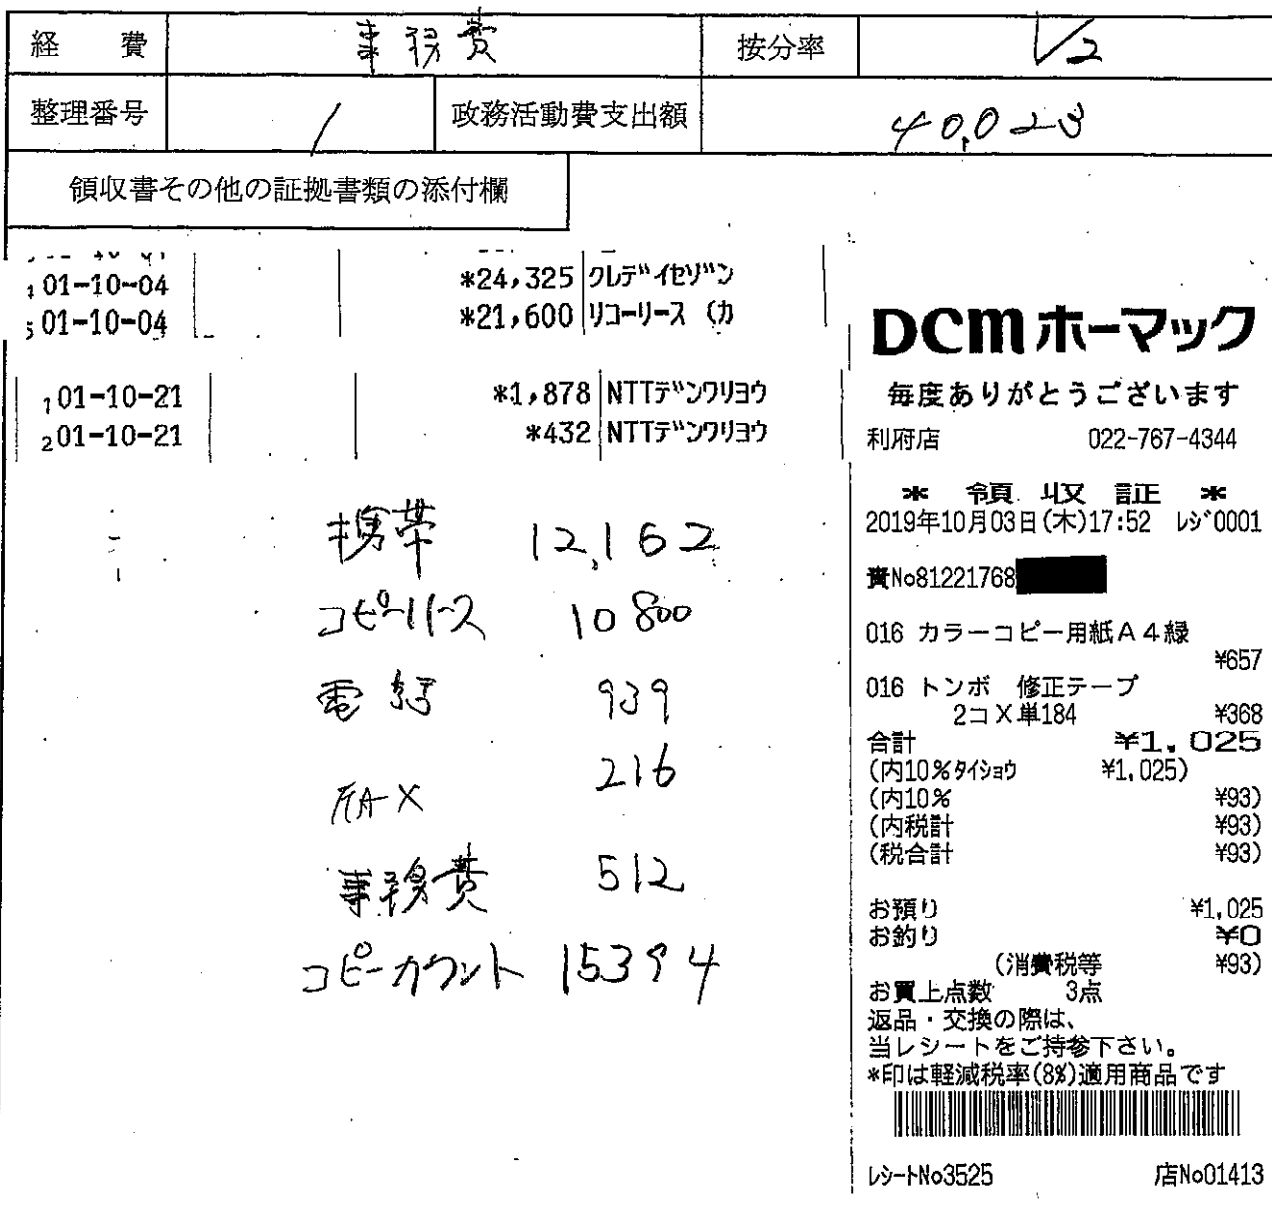 経 費 事務費 按分率 1/2
整理番号 1 政務活動費支出額 40,023
領収書その他の証拠書類の添付欄
4 01-10-04 *24,325 クレデイセゾン
5 01-10-04 *21,600 リコーリース (カ
1 01-10-21 *1,878 NTTデンワリヨウ
2 01-10-21 *432 NTTデンワリヨウ
携帯 12,162
コピーリース 10800
電話 939
FAX 216
事務費 512
コピーカウント 15394
DCMホーマック
毎度ありがとうございます
利府店 022-767-4344
* 領 収 証 *
2019年10月03日(木)17:52 レジ0001
責No81221768
016 カラーコピー用紙A4緑
¥657
016 トンボ 修正テープ
2コX単184 ¥368
合計 ¥1,025
(内10%タイショウ ¥1,025)
(内10% ¥93)
(内税計 ¥93)
(税合計 ¥93)
お預り ¥1,025
お釣り ¥0
(消費税等 ¥93)
お買上点数 3点
返品・交換の際は、
当レシートをご持参下さい。
*印は軽減税率(8%)適用商品です
レシートNo3525 店No01413